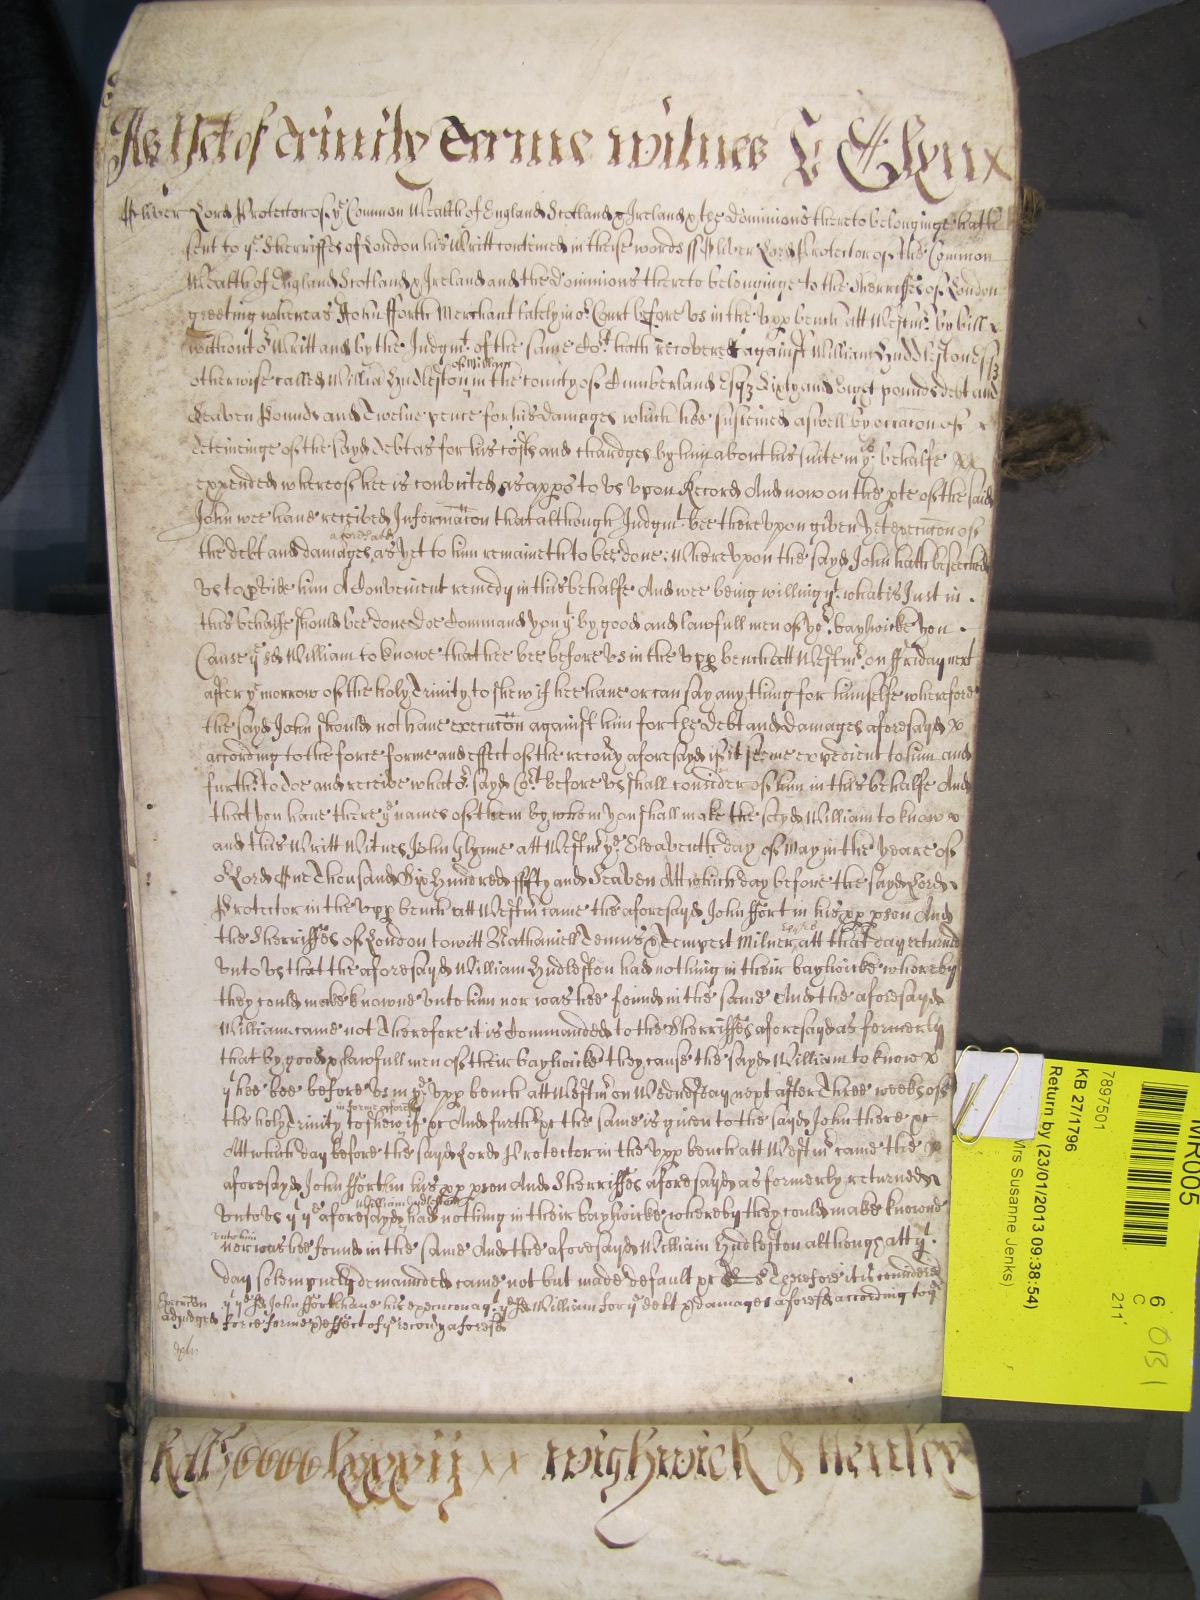 As Yet of Trinity Terme witnes J Glynn
Oliver Lord Protector of ye Common Wealth of England Scotland & Ireland & the Dominions thereto belonginge hath
sent to ye Sherriffes of London his Writt conteined in these words ss Oliver Lord Protector of the Common
Wealth of England Scotland & Ireland and the Dominions thereto belonginge to the Sherriffes of London
greeting whereas John fforth Merchant lately in or Court before vs in the vpp bench att Westmr. by bill
without or Writt and by the Judgmt. of the same Cort hath recovered against William Huddleston Esqz
otherwise called William Hudleston of Millum in the county of Cumberland Esqz Sixty and eight pounds debt and
Seaven Pounds and Twelue pence for his damages which hee susteined aswell by occacon of
deteininge of the sayd debt as for his costs and chardges by him about his suite in yt behalfe
expended whereof hee is convicted as appes to vs vpon Record And now on the pte of the said
John wee haue received Informacon that although Judgmt. bee therevpon given yet execucon of
the debt and damages aforesayd as yet to him remaineth to bee done: Wherevpon the sayd John hath beseeched
vs to pvide him A Convenient remedy in this behalfe And wee being willing yt. what is Just in
this behalfe should bee done Doe Command you yt by good and lawfull men of yor. baylwicke you
Cause ye sd William to knowe that hee bee before vs in the vpp bench att Westmr. on ffriday next
after ye morrow of the holy Trinity to shew if hee haue or can say any thing for himselfe wherefore
the sayd John should not haue execucon against him for the Debt and Damages aforesayd
according to the force forme and effect of the recoūy aforesayd if it seeme expedient to him and
furthr. to doe and receive what or. sayd Cort. before vs shall consider of him in this behalfe And
that you haue there ye names of them by whom you shall make the sayd William to know
and this Writt Witnes John Glynne att Westmr ye. Eleaventh day of May in the yeare of
or Lord One Thousand Six Hundred ffifty and Seaven Att which day before the sayd Lord
Protector in the vpp bench att Westmr came the aforesayd John ffort in his pp pson And
the Sherriffes of London towitt Nathaniell Temms & Tempest Milner Esqrs att that day returned
vnto vs that the aforesayd William Hudleston had nothing in their baylwicke whereby
they could make knowne vnto him nor was hee found in the same And the aforesayd
William came not Therefore it is Commanded to the Sherriffes aforesayd as formerly
that by good & lawfull men of their baylwicke they cause the sayd William to know
yt hee bee before vs in ye. vpp bench att Westmr on Wednesday next after Three weekes of
the holy Trinity to shew in forme aforesd if &c And furthr &c the same is given to the sayd John there &c
Att which day before the sayd Lord Protector in the vpp bench att Westmr came the
aforesayd John fforth in his pp pson And Sherriffes aforesayd as formerly returned
vnto vs yt ye aforesayd William Hudleston had nothing in their baylwicke whereby they could make knowne
vnto him nor was hee found in the same And the aforesayd William Hudleston although att yt.
day solempnely demaunded came not but made default &c Therefore it is considered
Execucon adjudged yt ye sd John fforth haue his execucon agt. ye sd William for ye debt & damages aforesd according to ye
force forme & effect of ye recoūy aforesd
Wighwick & Henley
MR005
78975501
KB 27/1796
Return by (23/01/2013 09:38:54)
Mrs Susanne Jenks)
6
C
211'